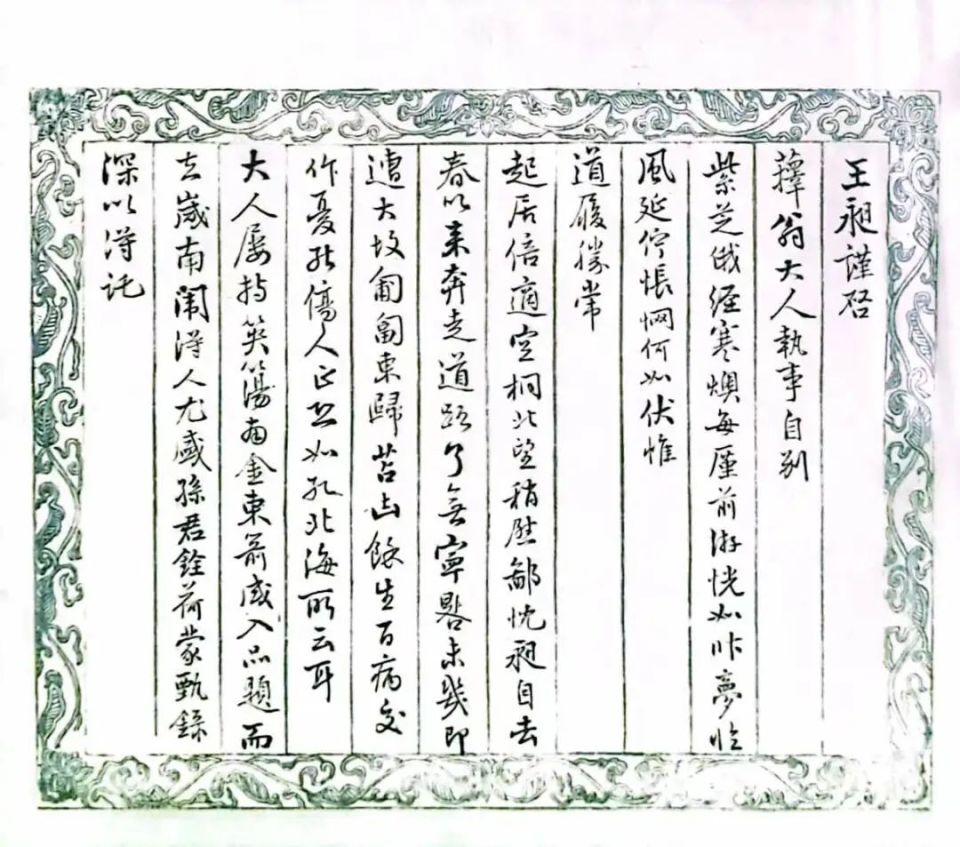 王昶謹启
蘀翁大人執事自别
紫芝俄經寒燠每廑前游恍如昨夢臨
風延佇悵惘何如伏惟
道履勝常
起居倍適空桐北望稍慰鄙忱昶自去
春以来奔走道路了無寧晷未幾即
遭大故匍匐東歸苫凷餘生百病交
作憂能傷人正如孔北海所云耳
大人屢持英簜南金東箭咸入品題而
去歲南闈得人尤盛孫君銓荷蒙甄錄
深以得託